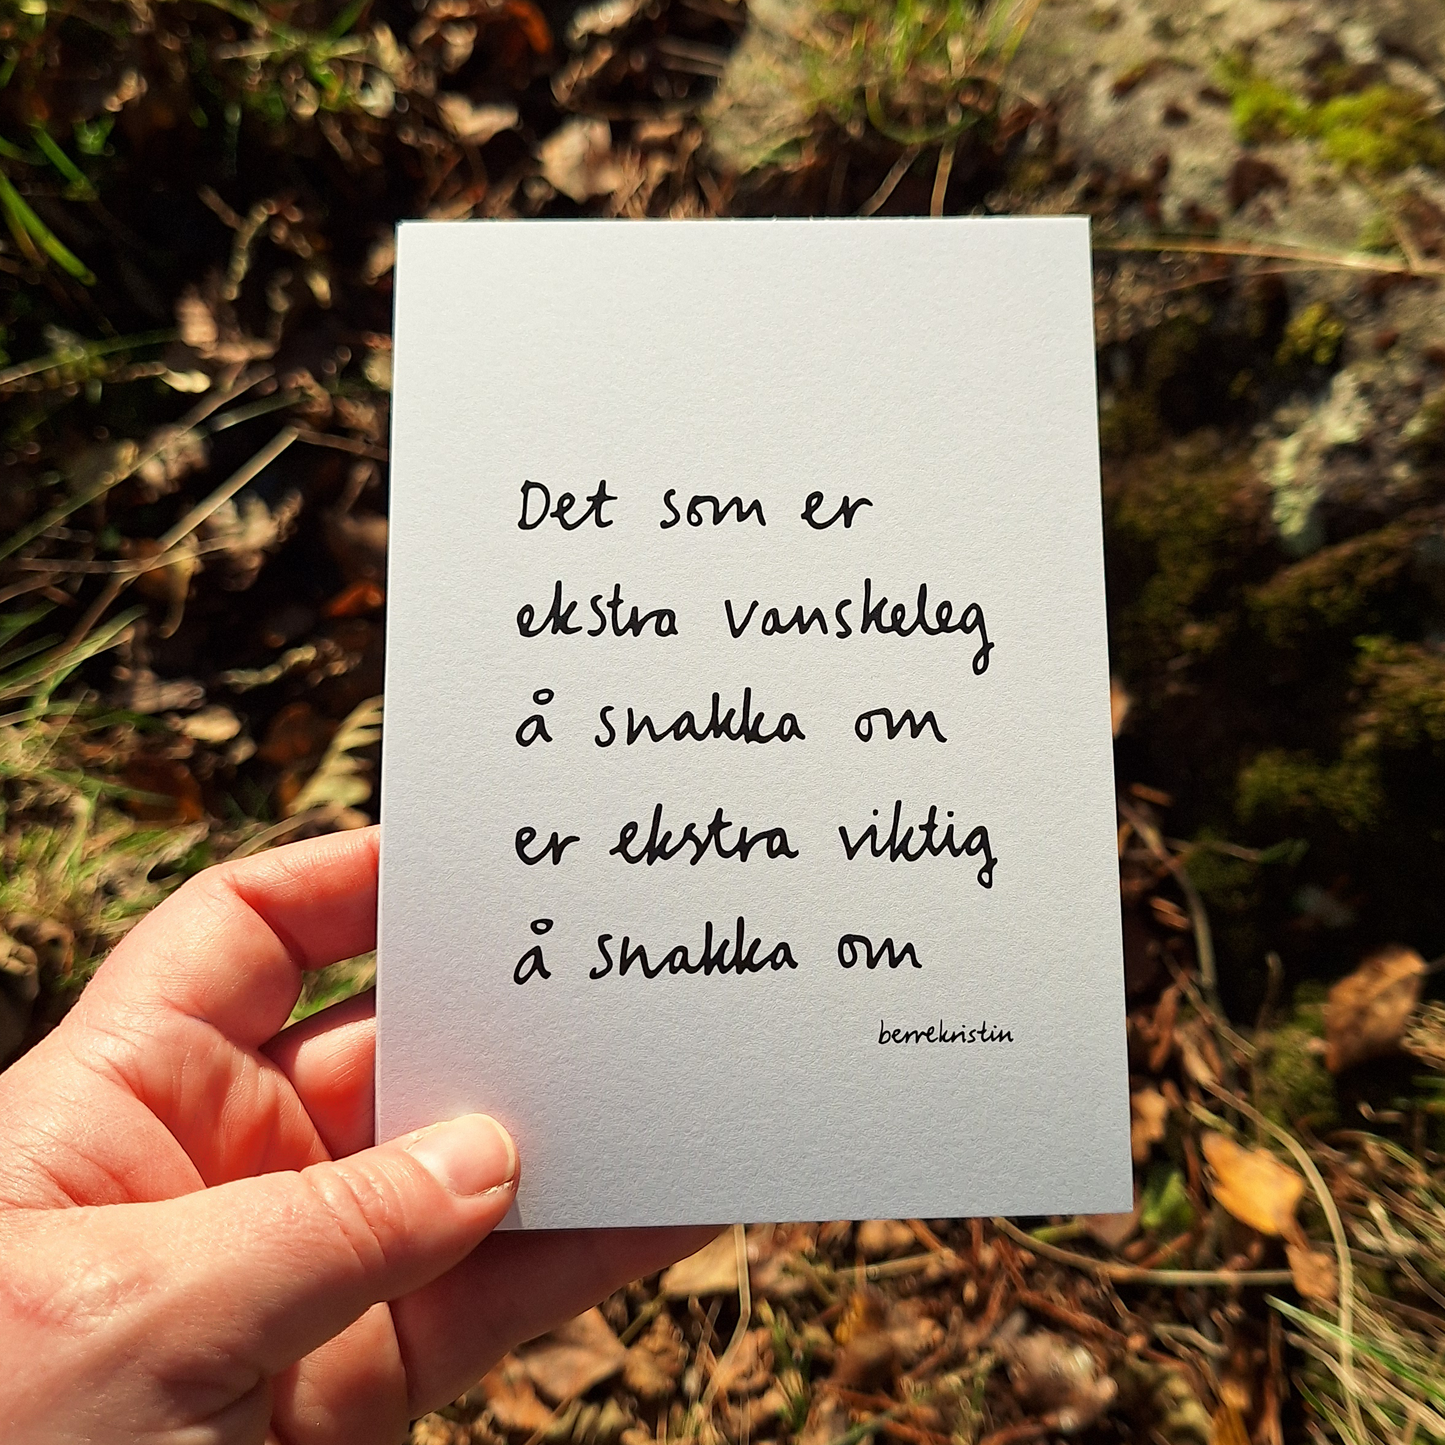 Det som er
ekstra vanskeleg
å snakka om
er ekstra viktig
å snakka om
berrekristin